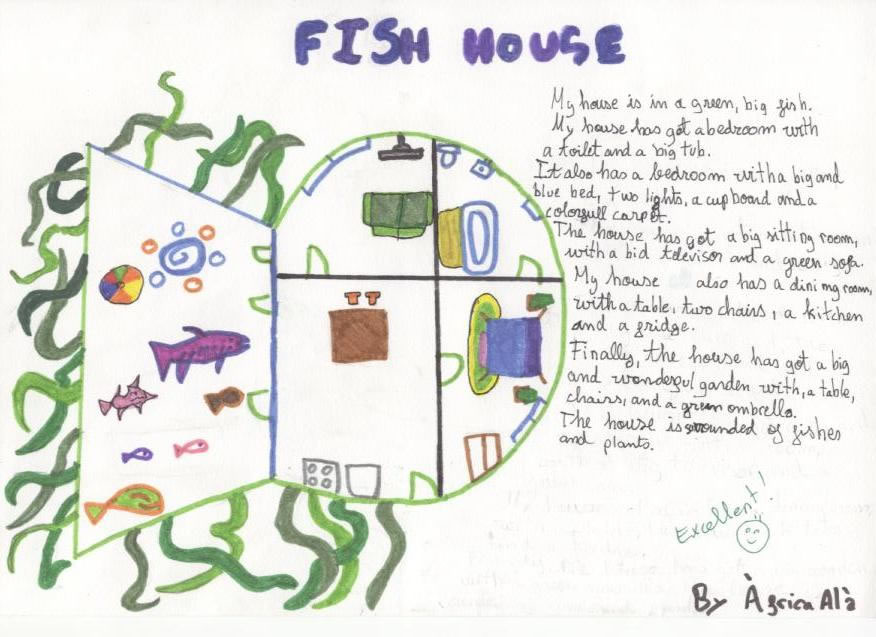 FISH HOUSE
My house is in a green, big fish.
My house has got a bedroom with
a toilet and a big tub.
It also has a bedroom with a big and
blue bed, two lights, a cupboard and a
colorfull carpet.
The house has got a big sitting room,
with a bid televisor and a green sofa.
My house also has a dining room,
with a table, two chairs, a kitchen
and a fridge.
Finally, the house has got a big
and wonderful garden with, a table,
chairs, and a green ombrella.
The house is srounded of fishes
and plants.
Excellent!
By Àfrica Alà